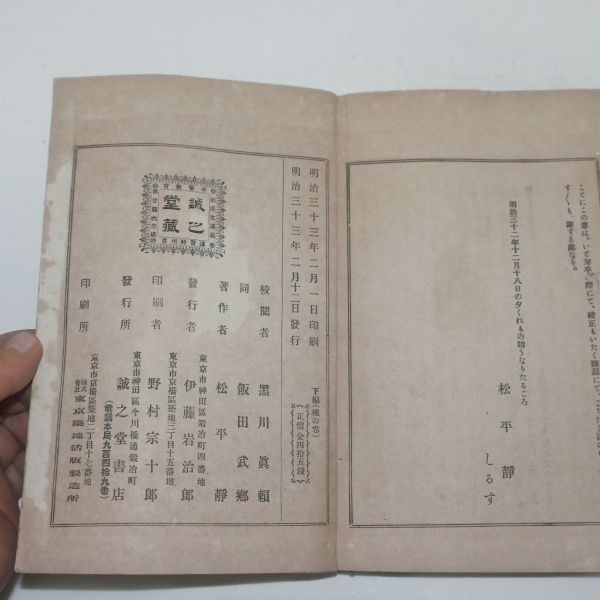 ことにこの巻は、いと匆卒の際にて、校正もいたく疎漏に
すぐしも、謝する處なり。
明治三十二年十二月十八日の夕くれもの踏うなりたるころ
松平靜
しるす
明治三十三年二月一日印刷
明治三十三年二月十二日發行
下編
正價金四拾五錢
校閲者 黑川眞賴
同 飯田武鄕
著作者 松平靜
東京市神田區鍛冶町四番地
發行者 伊藤岩治郎
東京市京橋區築地二丁目十五番地
印刷者 野村宗十郎
東京市神田區今川橋通鍛冶町
發行所 誠之堂書店
(電話本局九百四拾九番)
東京市京橋區築地二丁目十七番地
印刷所 株式會社 東京築地活版製造所
誠之
堂藏